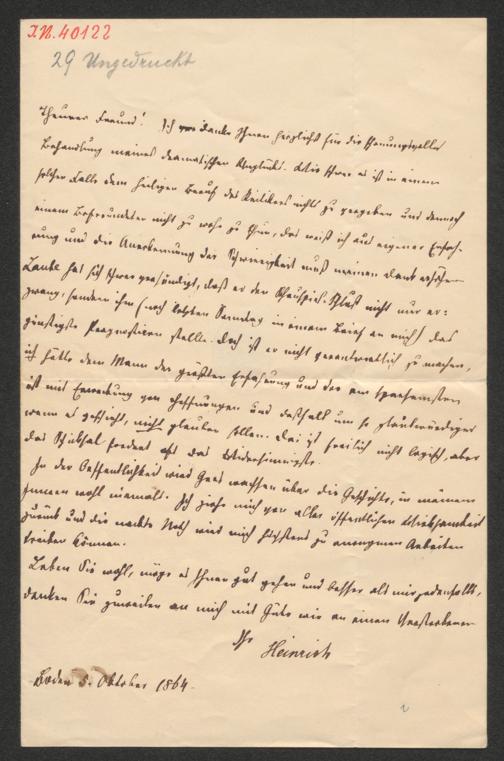 I.N. 40122
29 Ungedruckt
Theurer Freund! Ich danke Ihnen herzlichst für die schonungsvolle
Behandlung meines dramatischen Unglücks. Wie schwer es ist in einem
solchen Falle dem heiligen Beruf des Kritikers nichts zu vergeben und dennoch
einem Befreundeten nicht zu wehe zu thun, das weiß ich aus eigener Erfah-
rung und die Anerkennung der Schwierigkeit muß meinen Dank erhöhen.
Laube hat sich schwer versündigt, daß er den nicht nur er:
zwang, sondern ihm (noch letzten Samstag in einem Brief an mich) das
günstigste Prognostikon stellte. Doch ist er nicht verantwortlich zu machen,
ich hätte dem Mann der größten Erfahrung und der am sparsamsten
ist mit Erweckung von Hoffnungen und deßhalb um so glaubwürdiger
wenn es geschieht, nicht glauben sollen. Das ist freilich nicht logisch, aber
das Schicksal fordert oft das Widersinnigste.
In der Oeffentlichkeit wird Gras wachsen über die Geschichte, in meinem
Innern wohl niemals. Ich ziehe mich von aller öffentlichen Wirksamkeit
zurück und die nackte Noth wird mich höchstens zu anonymen Arbeiten
treiben können.
Leben Sie wohl, möge es Ihnen gut gehen und besser als mir jedenfalls,
denken Sie zuweilen an mich mit Güte wie an einen Verstorbenen
Ihr
Heinrich
Baden 5. Oktober 1864.